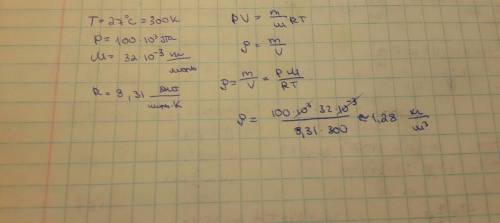 T = 27°C = 300K
P = 100·10³ Па
M = 32·10⁻³ кг/моль
R = 8,31 Дж/моль·K
PV = m/M RT
ρ = m/V
ρ = m/V = PM/RT
ρ = 100·10³·32·10⁻³/8,31·300 ≈ 1,28 кг/м³